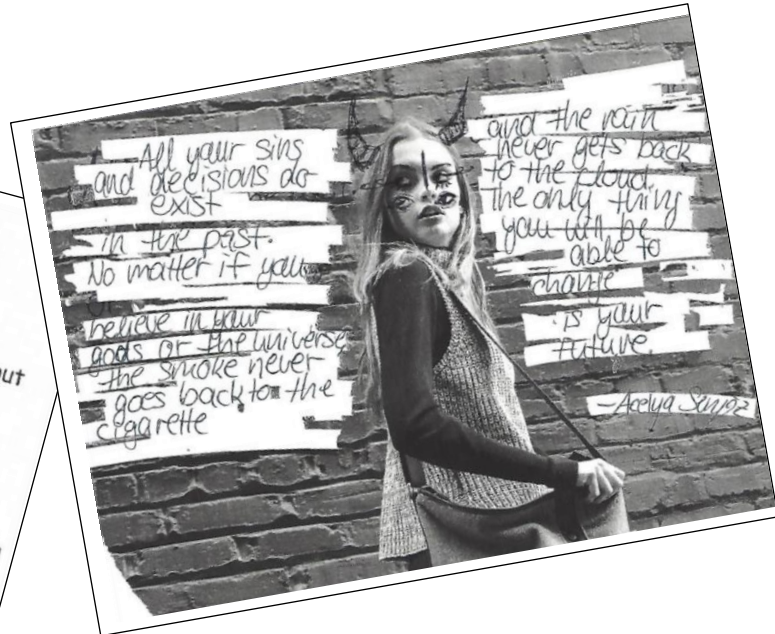 All your sins
and decisions do
exist
in the past.
No matter if you
believe in your
gods or the universe
the smoke never
goes back to the
cigarette
and the rain
never gets back
to the cloud.
the only thing
you will be
able to
change
is your
future.
-Acelya